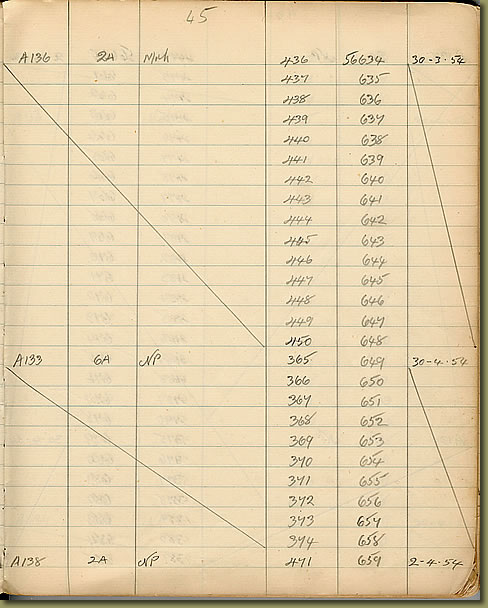 45
A136 2A 436 56634 30-3-54
437 635
438 636
439 637
440 638
441 639
442 640
443 641
444 642
445 643
446 644
447 645
448 646
449 647
450 648
A133 6A NP 365 649 30-4-54
366 650
367 651
368 652
369 653
370 654
371 655
372 656
373 657
374 658
A138 2A NP 471 659 2-4-54